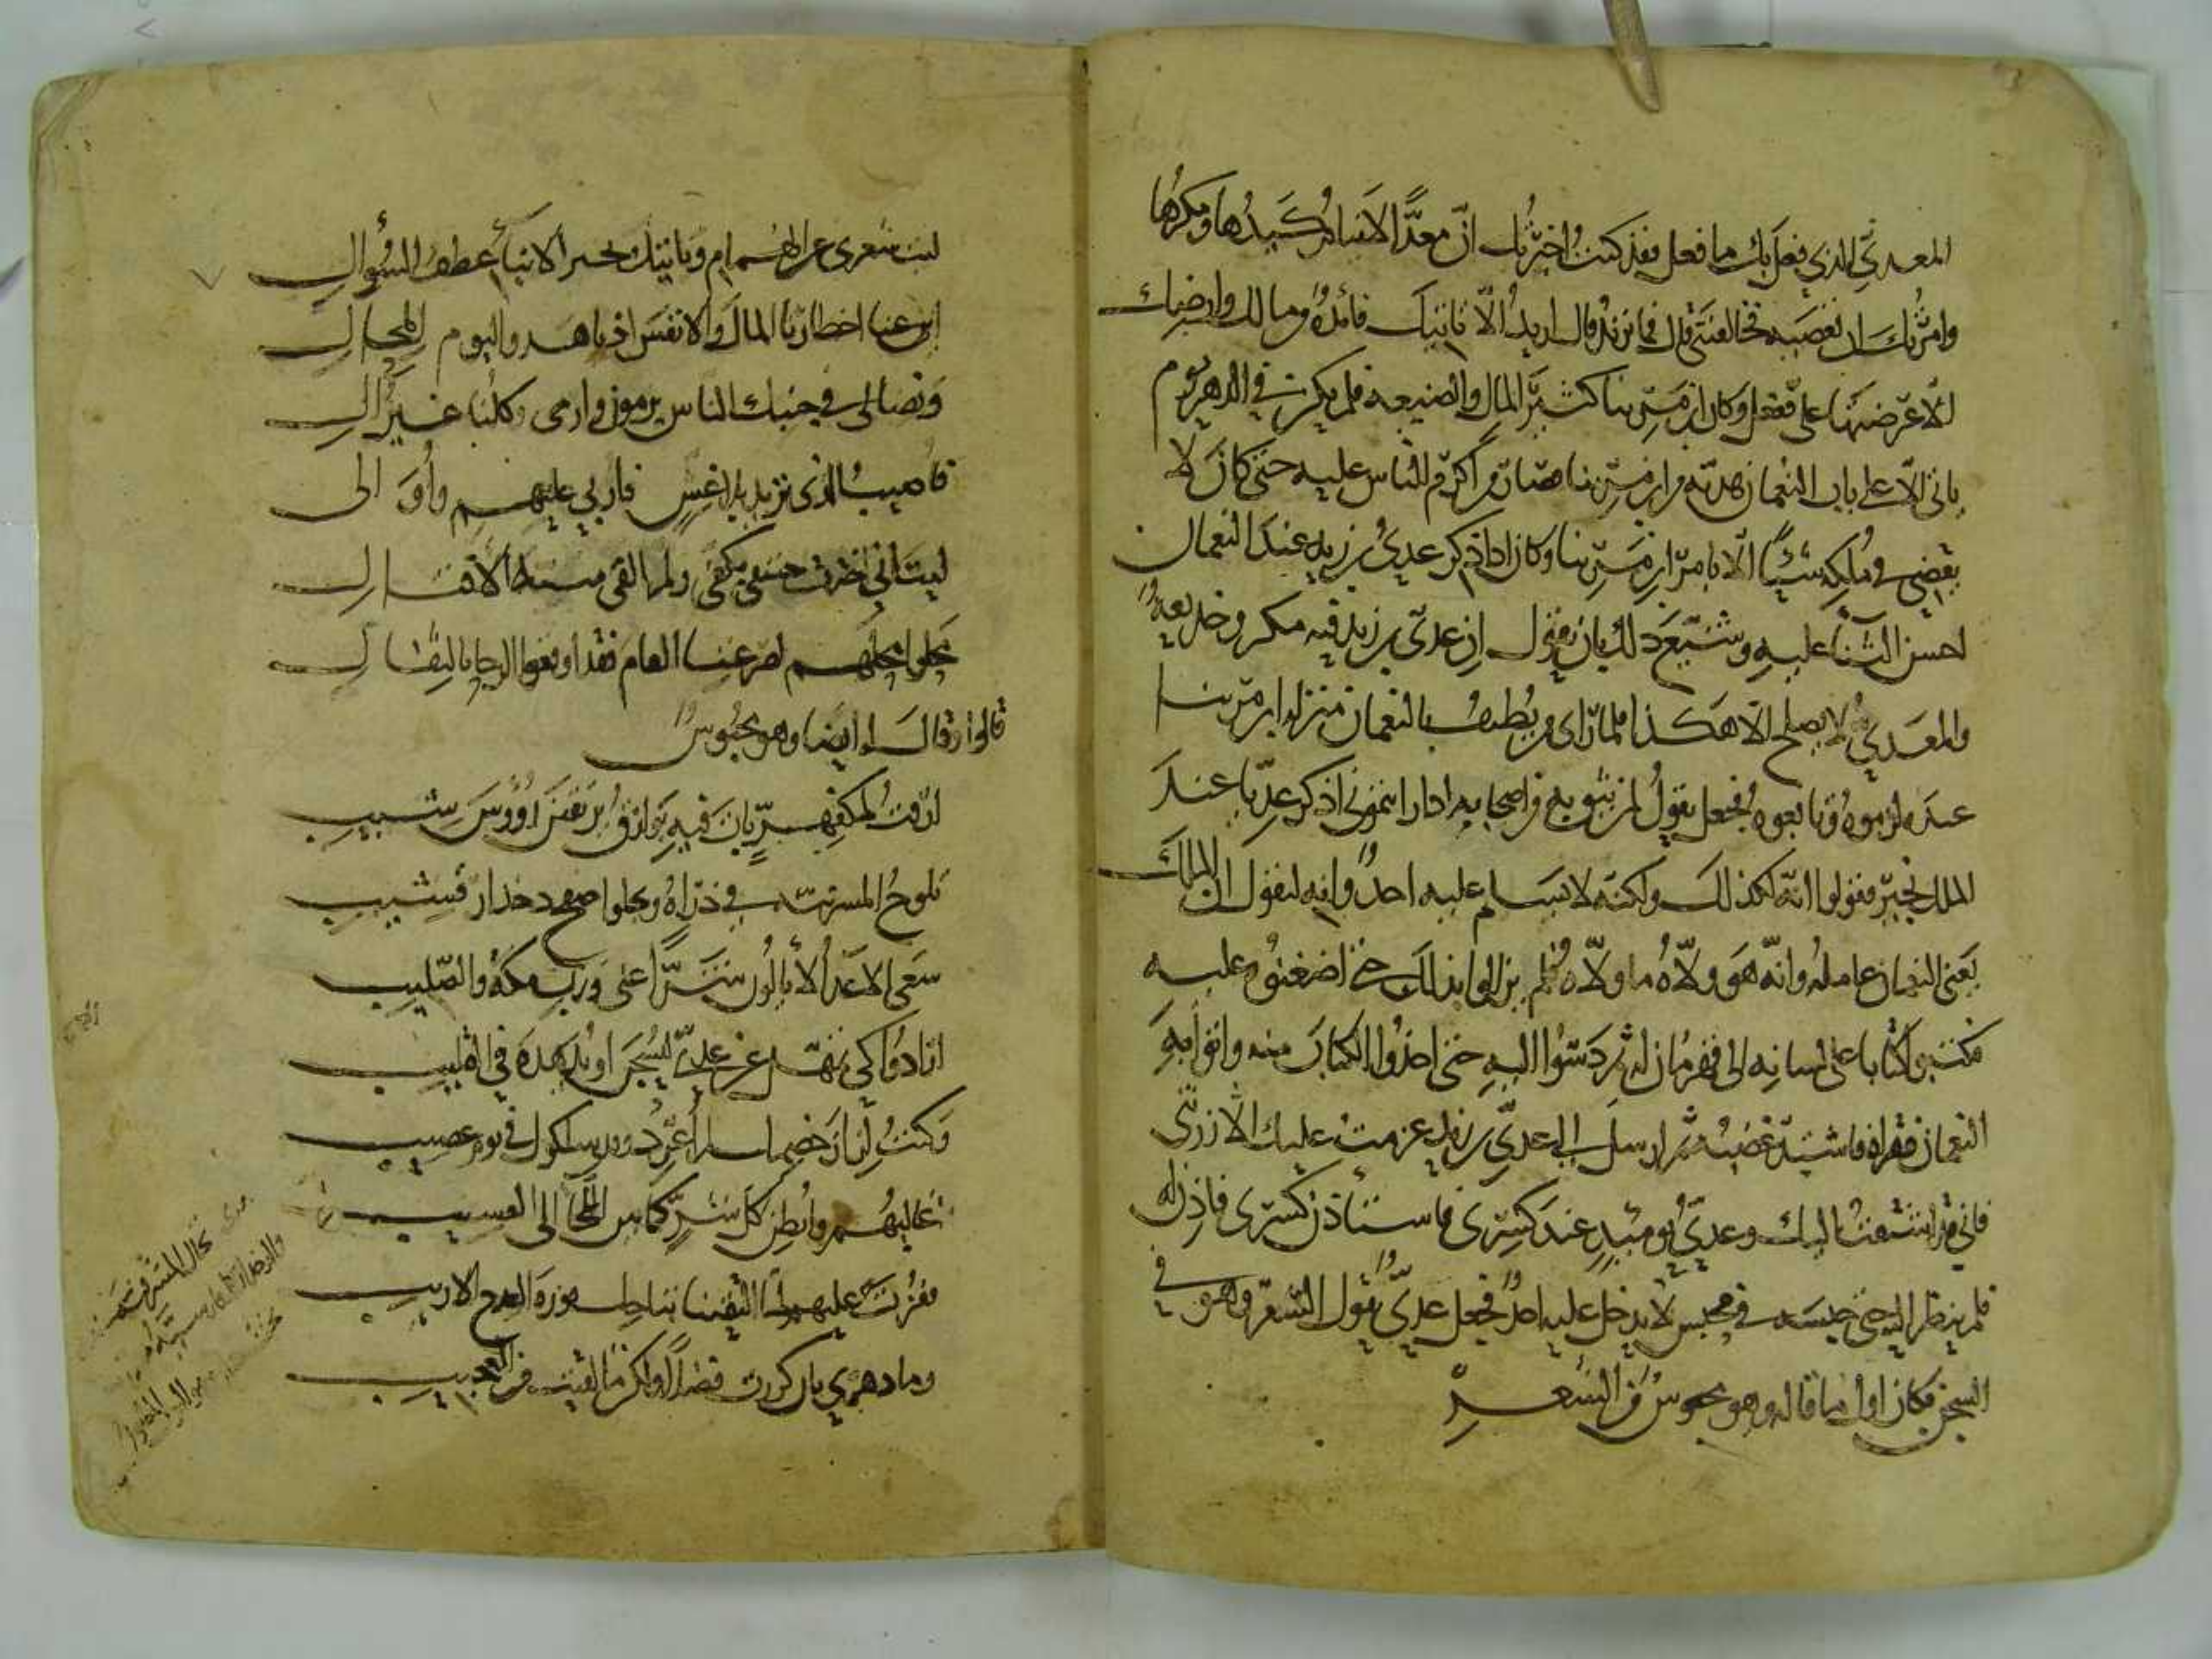 المعدي الذي فعل بك ما فعل فقد كنت اخبرتك ان معدا لا ينام كيدها ومكرها
وامرتك ان تعصيه فخالفتني قال فما تريد قال اريد الا ياتيك فائدة من مالك وارضك
الا عرضتها علي ففعل وكان ابن مرينا كثير المال والضيعة فلم يكن في الدهر يوم
ياتي الا على باب النعمان هدية من ابن مرينا فصار من اكرم الناس عليه حتى كان لا
يقضي في ملكه شيئا الا بامر ابن مرينا وكان اذا ذكر عدي بن زيد عند النعمان
احسن الثناء عليه وشيع ذلك بان يقول ان عدي بن زيد فيه مكر وخديعة
والمعدي لا يصلح الا هكذا فلما راى من يطيف بالنعمان منزلة ابن مرينا
عنده لزموه وتابعوه فجعل يقول لمن يثق به من اصحابه اذا رايتموني اذكر عديا عند
الملك بخير فقولوا انه لكذلك ولكنه لا يسلم عليه احد وانه ليقول ان الملك
يعني النعمان عامله وانه هو ولاه ما ولاه فلم يزالوا بذلك حتى اضغنوه عليه
فكتبوا كتابا على لسانه الى قهرمان له ثم دسوا اليه حتى اخذوا الكتاب منه واتوا به
النعمان فقراه فاشتد غضبه ثم ارسل الى عدي بن زيد عزمت عليك الا زرتني
فاني قد اشتقت اليك وعدي يومئذ عند كسرى فاستأذن كسرى فاذن له
فلم ينظر اليه حتى حبسه في محبس لا يدخل عليه احد فجعل عدي يقول الشعر وهو في
السجن فكان اول ما قاله وهو محبوس من الشعر
ليت شعري عن الهمام وياتيك بخبر الانباء عطف السؤال
اين عنا اخطارنا المال والانفس اذ ناهدوا ليوم المحال
ونضالي في جنبك الناس يرمون وارمي وكلنا غير ال
فاصيب الذي تريد بلا غش فاربي عليهم واوالي
ليت اني اخذت حتفي بكفي ولم القى ميتة الاقتال
محلوا محلهم لصرعتنا العام فقد اوقعوا الرحا بالثفال
قالوا وقال ايضا وهو محبوس
ارقت لمكفهر بات فيه بوارق يرتقين رؤوس شيب
تلوح المشرفية في ذراه ويجلوا صفح دخدار قشيب
سعى الاعداء لا يالون شرا علي ورب مكة والصليب
ارادوا كي تمهل عن عدي ليسجن او يدهده في القليب
وكنت لزاز خصمك لم اعرد وقد سلكوك في يوم عصيب
اعالنهم وابطن كل سر كما بين اللحاء الى العسيب
ففزت عليهم لما التقينا بتاجك فوزة القدح الاريب
وما دهري بان كدرت فضلا ولكن ما لقيت من العجيب